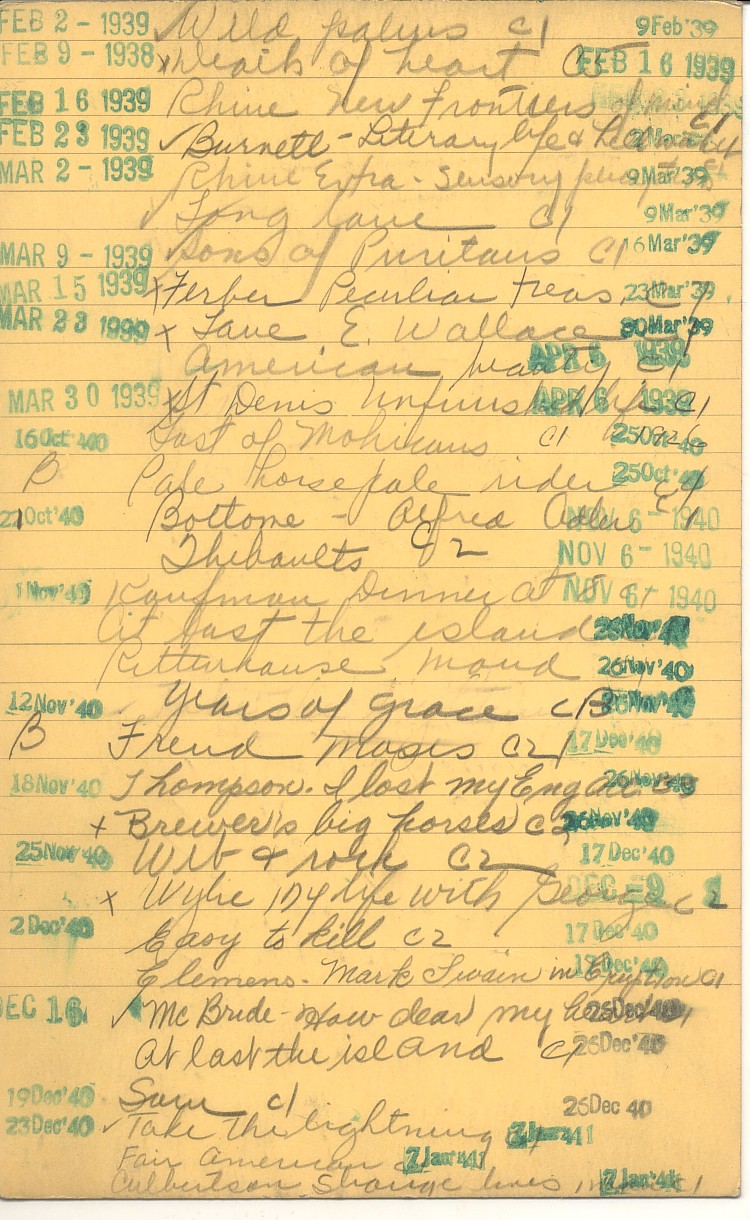 FEB 2 - 1939 Wild palms C1 9Feb'39
FEB 9 - 1938 x Death of heart C5 FEB 16 1939
FEB 16 1939 Rhine New Frontiers of mind C1
FEB 23 1939 ✓ Burnett - Literary life &
MAR 2 - 1939 Rhine Extra-Sensory 9Mar'39
✓ Long lane C1 9Mar'39
MAR 9 - 1939 ✓ Sons of Puritans C1 16Mar'39
MAR 15 1939 x Ferber Peculiar treas. C1 23Mar'39
MAR 23 1939 x Lane E. Wallace 30Mar'39
American beauty C1 APR 6 1939
MAR 30 1939 x St Denis Unfinished life C1 APR 6 1939
16Oct'40 Last of Mohicans C1 25Oct'40
B Pale horse pale rider C1 25Oct'40
22Oct'40 Bottome - Alfred Adler C1 NOV 6 - 1940
Thibaults C2 NOV 6 - 1940
1Nov'40 Kaufman Dinner at 8 C1 NOV 6 - 1940
At last the island 26Nov'40
Rittenhouse Maud 26Nov'40
12Nov'40 Years of Grace CB 26Nov'40
B Freud Moses C2 17Dec'40
18Nov'40 Thompson. I lost my English 26Nov'40
x Brewer's big horses C2 26Nov'40
25Nov'40 Web & rock C2 17Dec'40
x Wylie My life with George C2 DEC -9
2Dec'40 Easy to kill C2 17Dec'40
Clemens. Mark Twain in Eruption C1 17Dec'40
DEC 16 ✓ McBride - How dear my heart C1 26Dec'40
At last the island C1 26Dec'40
19Dec'40 Save C1 26Dec 40
23Dec'40 ✓ Take the lightning C1 7Jan'41
Fair American C1 7Jan'41
Culbertson Strange lives 7Jan'41